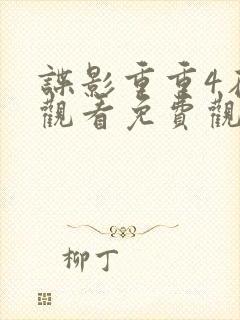 諜影重重4
觀看免費觀
柳丁